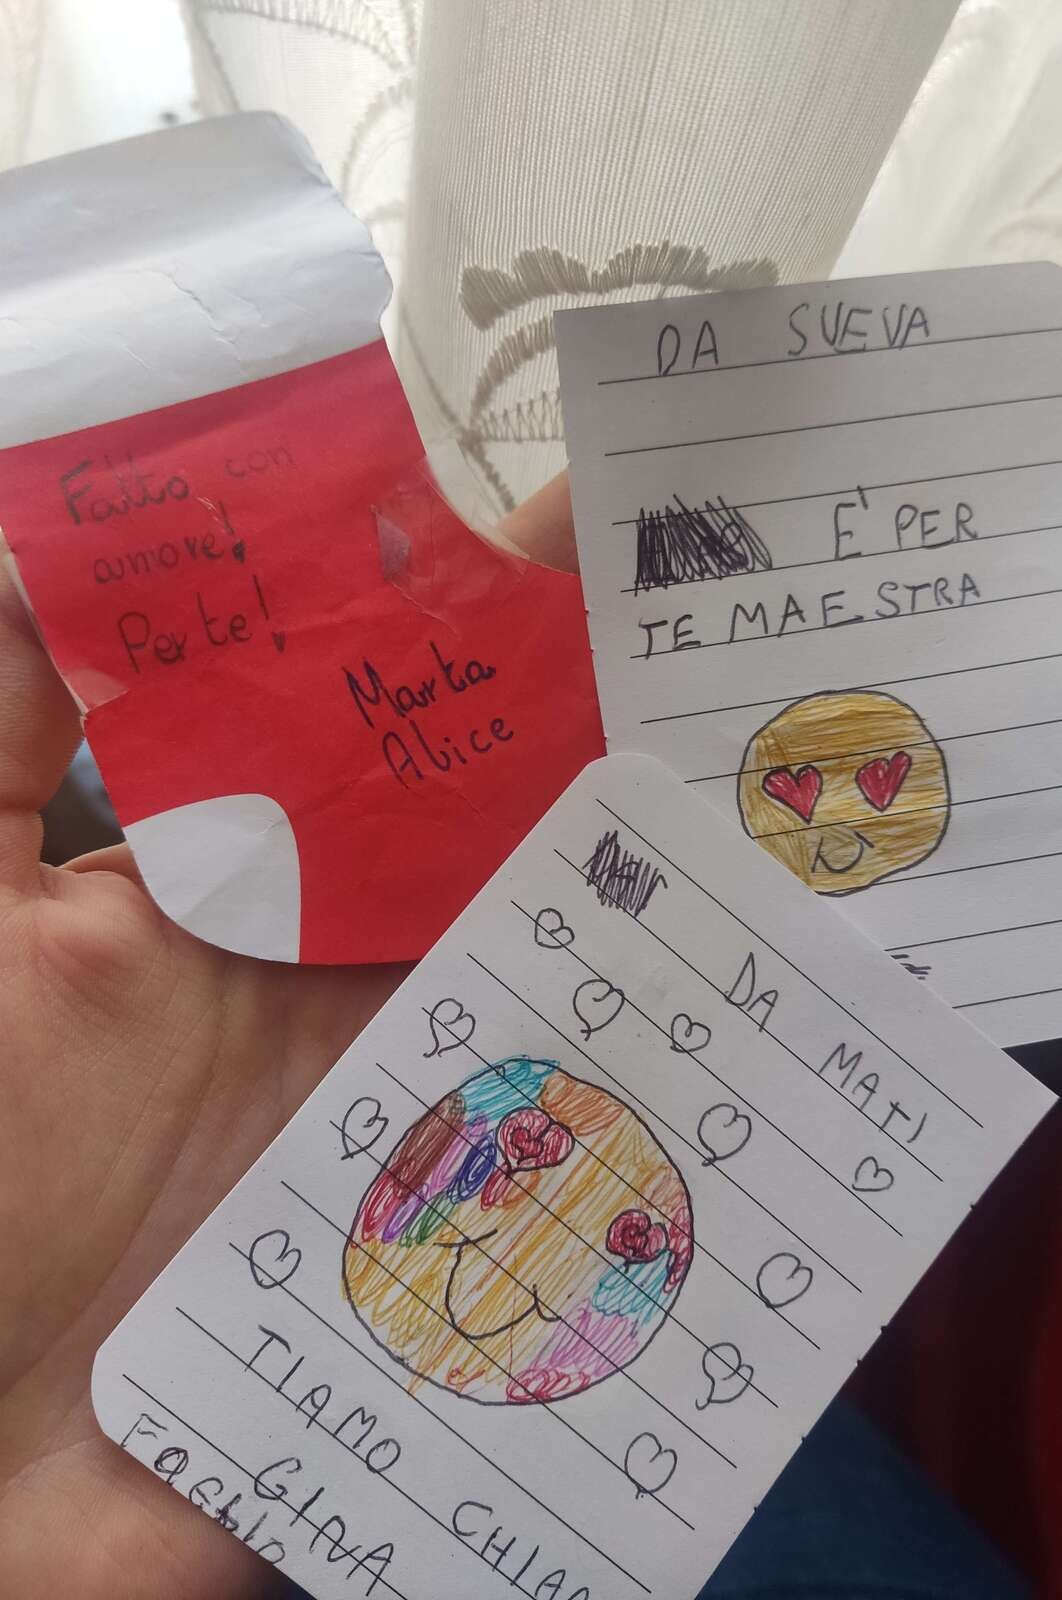 Fatto con
amore!
Per te!
Marta
Alice
DA SVEVA
E' PER
TE MAESTRA
DA MATI
TIAMO
GINA